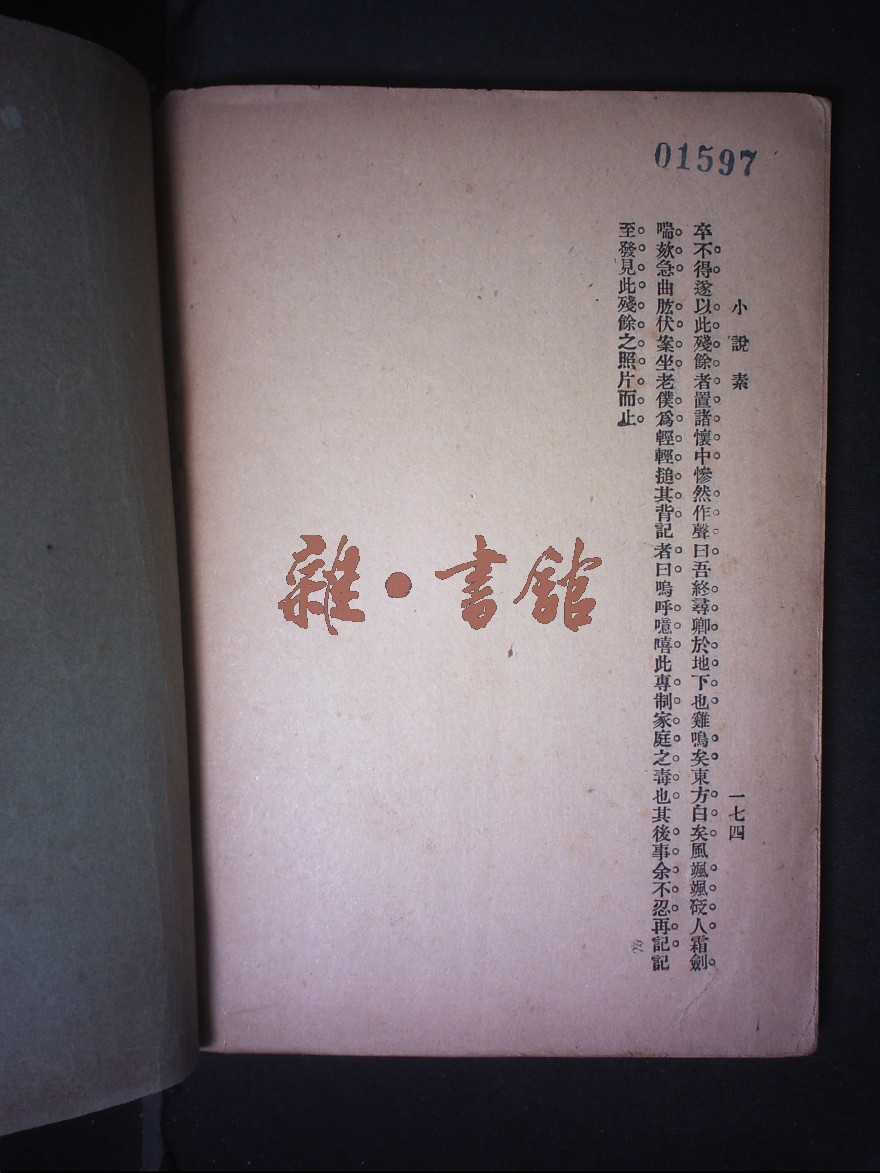 01597
小說素
一七四
卒不得遂以此殘餘者置諸懷中慘然作聲曰吾終尋卿於地下也雞鳴矣東方白矣風颯颯砭人霜劍
喘欬急曲肱伏案坐老僕爲輕輕搥其背記者曰嗚呼噫嘻此專制家庭之毒也其後事余不忍再記記
至發見此殘餘之照片而止
雜·書館